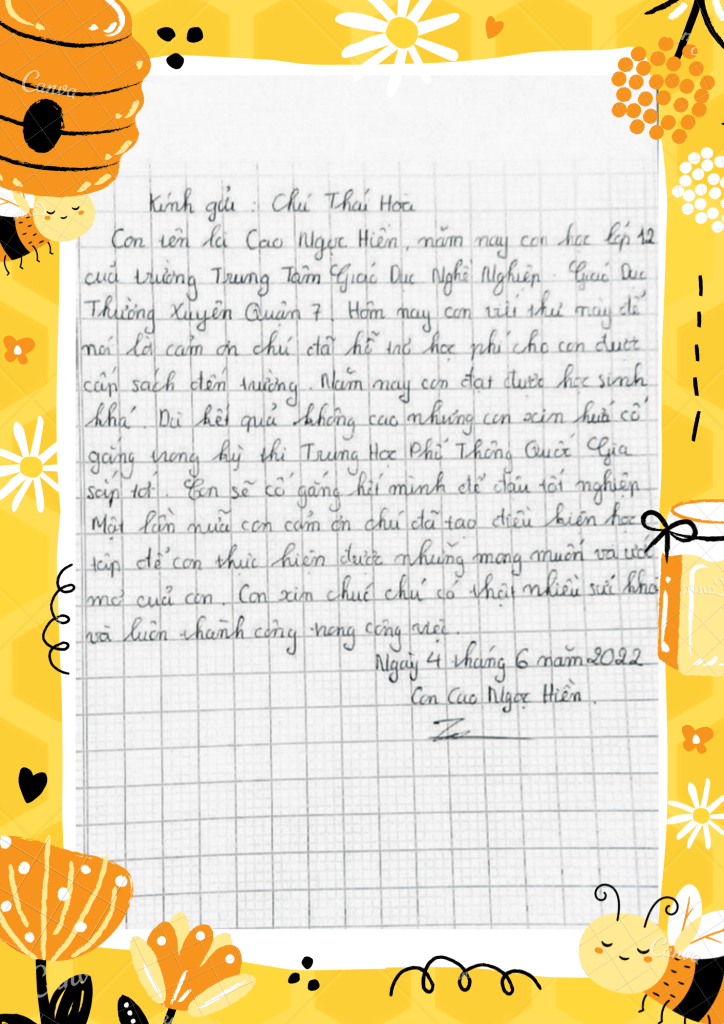 Kính gửi : Chú Thái Hoà
Con tên là Cao Ngọc Hiền, năm nay con học lớp 12
cuả trường Trung Tâm Giaó Dục Nghề Nghiệp - Giaó Dục
Thường Xuyên Quận 7. Hôm nay con viết thư này để
nói lời cảm ơn chú đã hỗ trợ học phí cho con được
cắp sách đến trường. Năm nay con đạt được học sinh
khá. Dù kết quả không cao nhưng con xin hứa cố
gắng trong kỳ thi Trung Học Phổ Thông Quốc Gia
sắp tới. Con sẽ cố gắng hết mình để đậu tốt nghiệp
Một lần nữa con cảm ơn chú đã tạo điều kiện học
tập để con thực hiện được những mong muốn và ước
mơ cuả con. Con xin chúc chú có thật nhiều sức khoẻ
và luôn thành công trong công việc.
Ngày 4 tháng 6 năm 2022
Con Cao Ngọc Hiền.
Canva
Canva
Canva